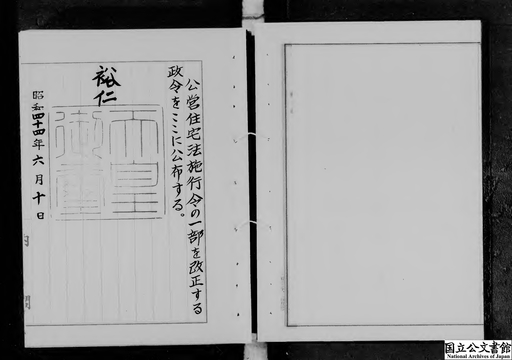 公営住宅法施行令の一部を改正する
政令をここに公布する。
裕仁
天皇御璽
昭和四十四年六月十日
国立公文書館
National Archives of Japan